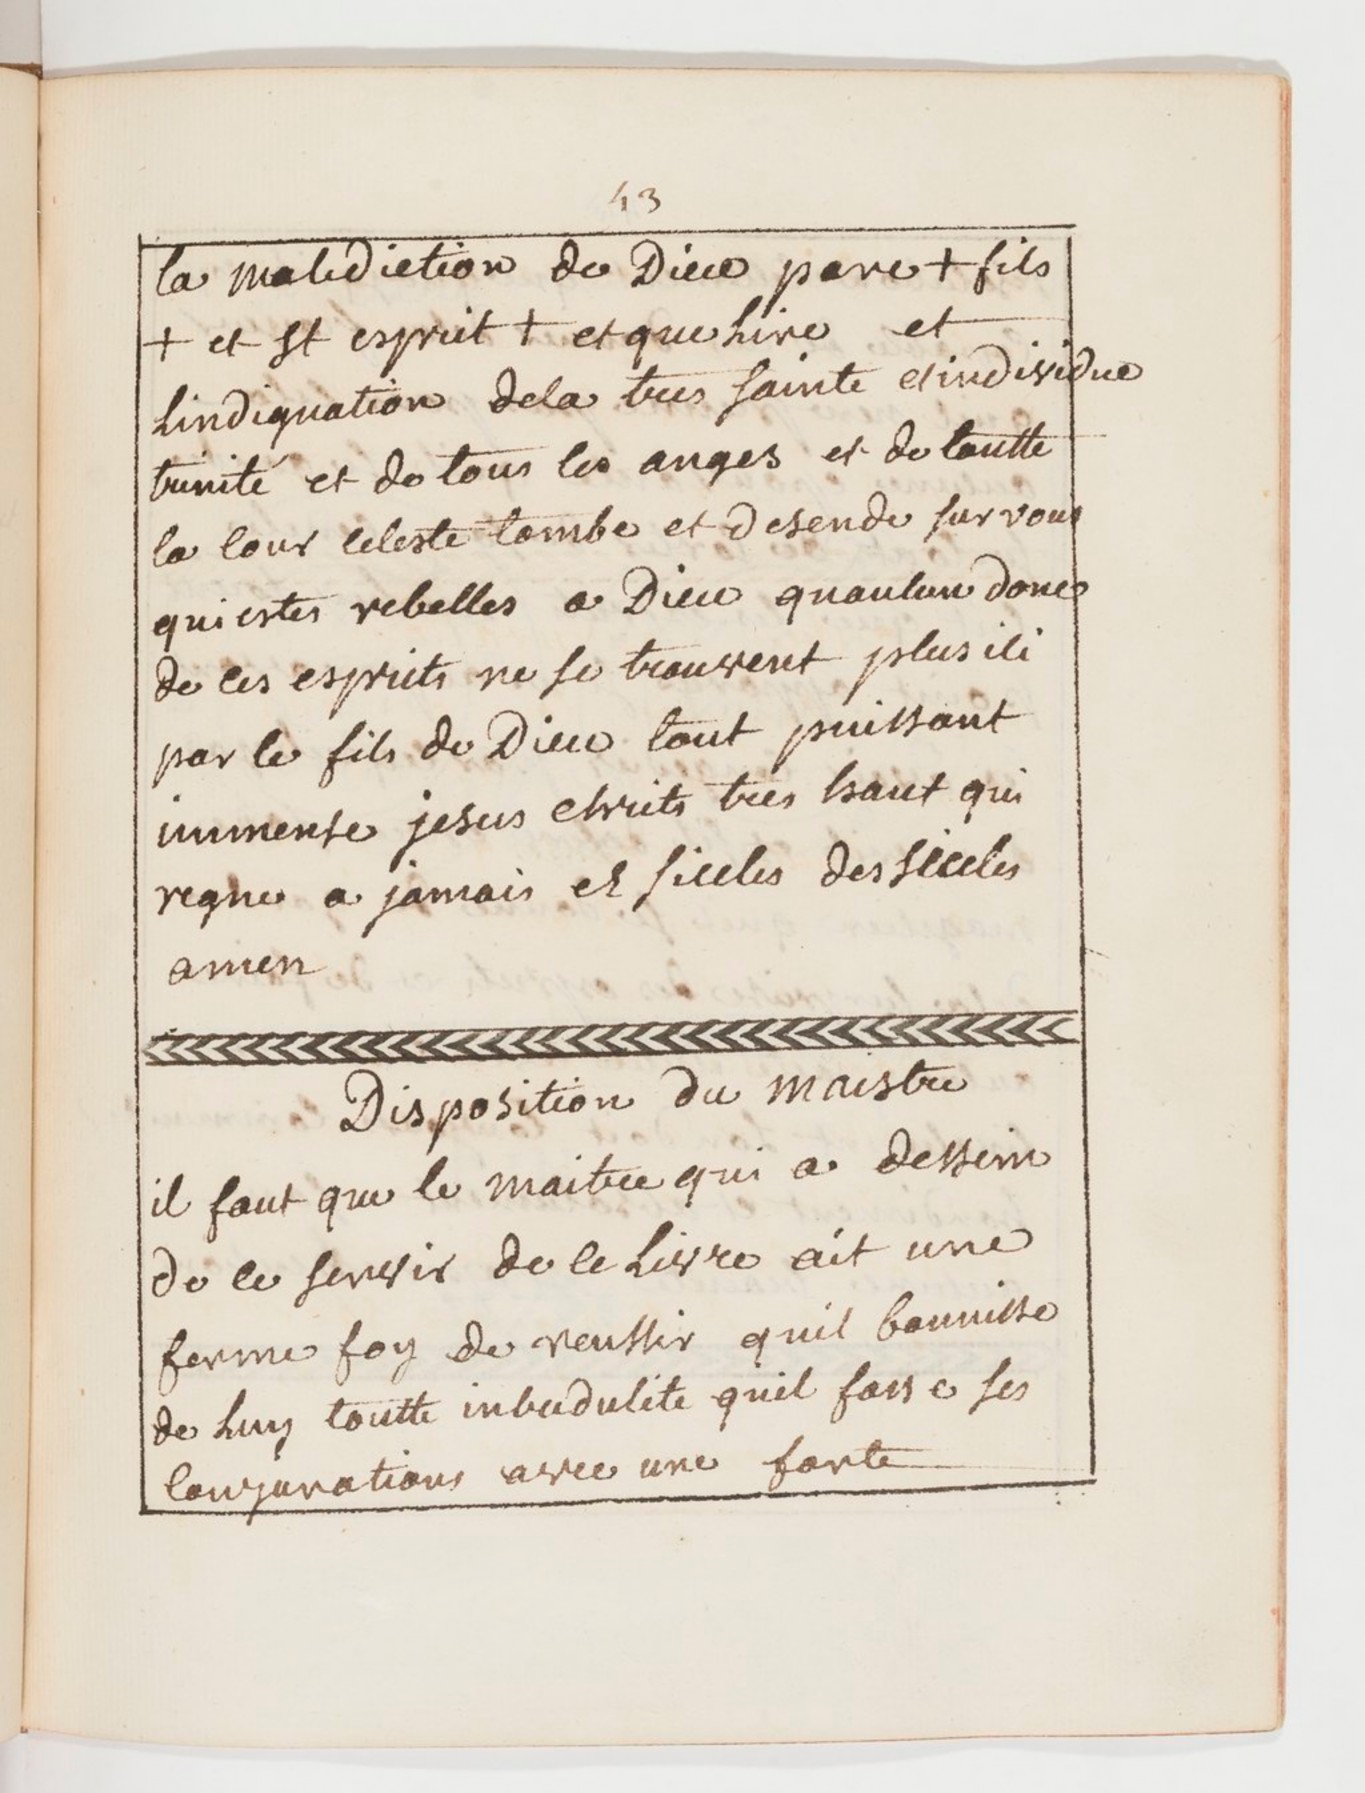 43
la malediction de Dieu pere + fils
+ et st esprit + et que Lire et
Lindignation dela tres sainte et individue
trinité et de tous les anges et de toutte
la cour celeste tombe et desende sur vous
qui estes rebelles a Dieu quaulun donc
de ces esprits ne se trouvent plus ici
par le fils de Dieu tout puissant
immense jesus chrits tres haut qui
regne a jamais es siecles des siecles
amen
Disposition du maistre
il faut que le maitre qui a dessein
de ce servir de ce Livre ait une
ferme foy de reussir quil bannisse
de Luy toutte incredulite quil fasse ses
conjurations avec une forte